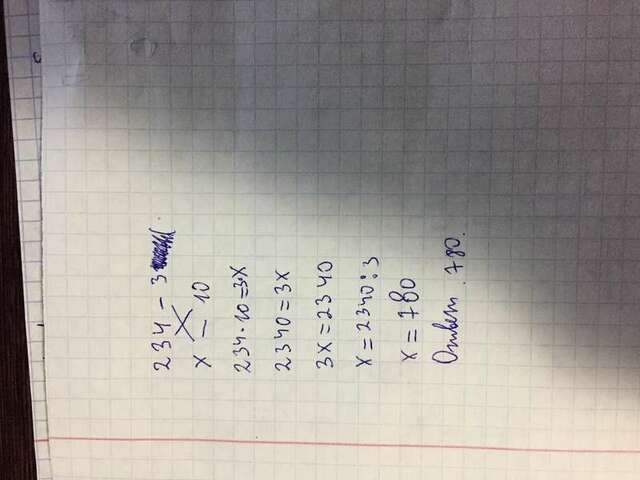 234 - 3
x - 10
234·10=3·x
2340=3x
3x=2340
x=2340:3
x=780
Ответ. 780.